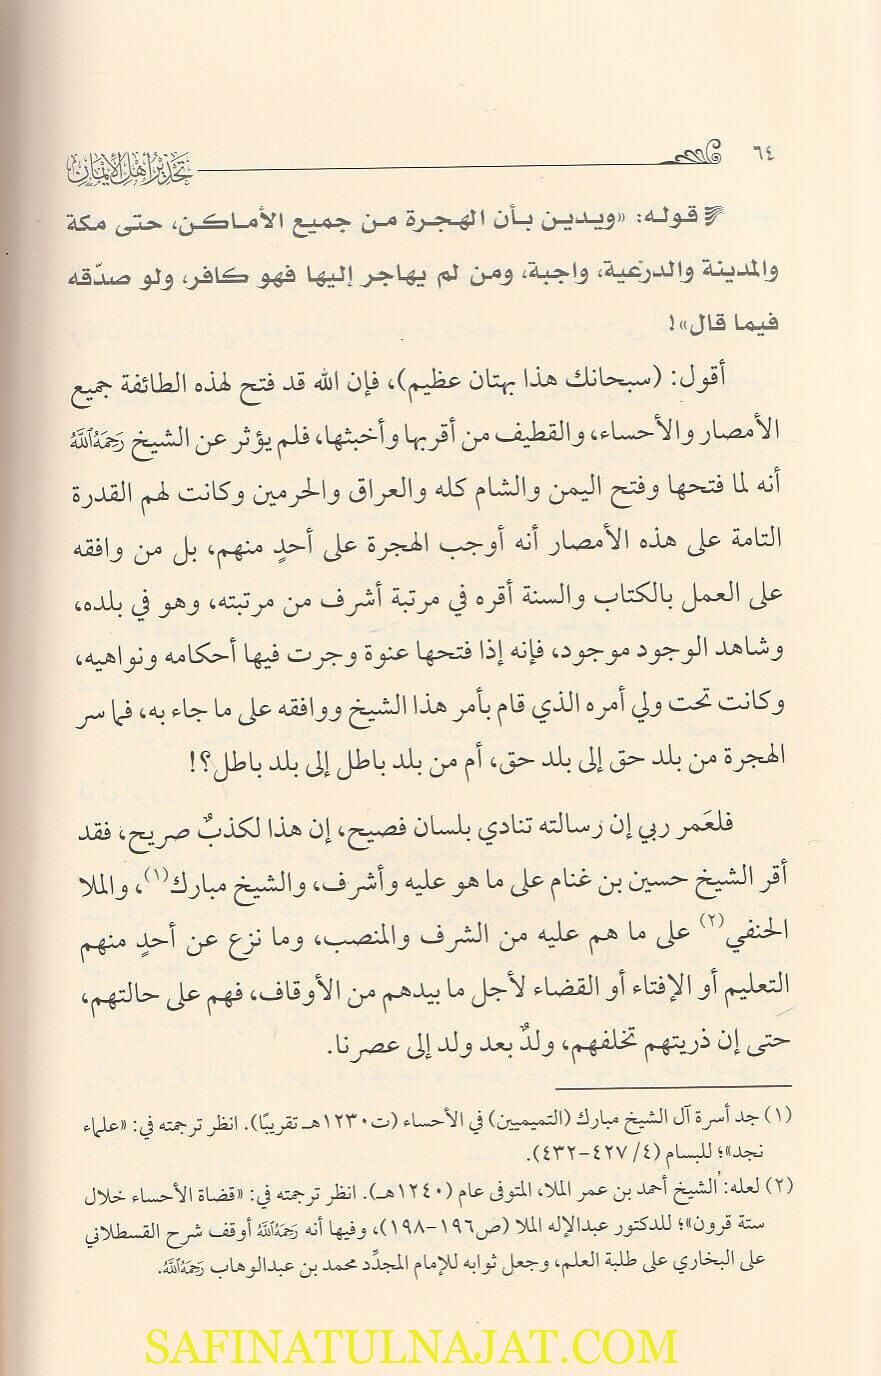 ٦٤
تحذير أهل الإيمان
قوله: «ويدين بأن الهجرة من جميع الأماكن، حتى مكة
والمدينة والدرعية، واجبة، ومن لم يهاجر إليها فهو كافر، ولو صدّقه
فيما قال»!
أقول: (سبحانك هذا بهتان عظيم)، فإن الله قد فتح لهذه الطائفة جميع
الأمصار والأحساء، والقطيف من أقربها وأخبثها، فلم يؤثر عن الشيخ رَحِمَهُ ٱللَّهُ
أنه لما فتحها وفتح اليمن والشام كله والعراق والحرمين وكانت لهم القدرة
التامة على هذه الأمصار أنه أوجب الهجرة على أحدٍ منهم، بل من وافقه
على العمل بالكتاب والسنة أقره في مرتبة أشرف من مرتبته، وهو في بلده،
وشاهد الوجود موجود، فإنه إذا فتحها عنوة وجرت فيها أحكامه ونواهيه،
وكانت تحت ولي أمره الذي قام بأمر هذا الشيخ ووافقه على ما جاء به، فما سر
الهجرة من بلد حق إلى بلد حق، أم من بلد باطل إلى بلد باطل؟!
فلعَمر ربي إن رسالته تنادي بلسان فصيح، إن هذا لكذبٌ صريح، فقد
أقر الشيخ حسين بن غنام على ما هو عليه وأشرف، والشيخ مبارك(١)، والملا
الحنفي(٢) على ما هم عليه من الشرف والمنصب، وما نزع عن أحدٍ منهم
التعليم أو الإفتاء أو القضاء لأجل ما بيدهم من الأوقاف، فهم على حالتهم،
حتى إن ذريتهم تخلفهم، ولدٌ بعد ولد إلى عصرنا.
(١) جد أسرة آل الشيخ مبارك (التميميين) في الأحساء (ت١٢٣٠هـ تقريبًا). انظر ترجمته في: «علماء
نجد»؛ للبسام (٤/ ٤٢٧-٤٣٢).
(٢) لعله: الشيخ أحمد بن عمر الملا، المتوفى عام (١٢٤٠هـ). انظر ترجمته في: «قضاة الأحساء خلال
ستة قرون»؛ للدكتور عبدالإله الملا (ص١٩٦-١٩٨)، وفيها أنه رَحِمَهُ ٱللَّهُ أوقف شرح القسطلاني
على البخاري على طلبة العلم، وجعل ثوابه للإمام المجدِّد محمد بن عبدالوهاب رَحِمَهُ ٱللَّهُ.
SAFINATULNAJAT.COM